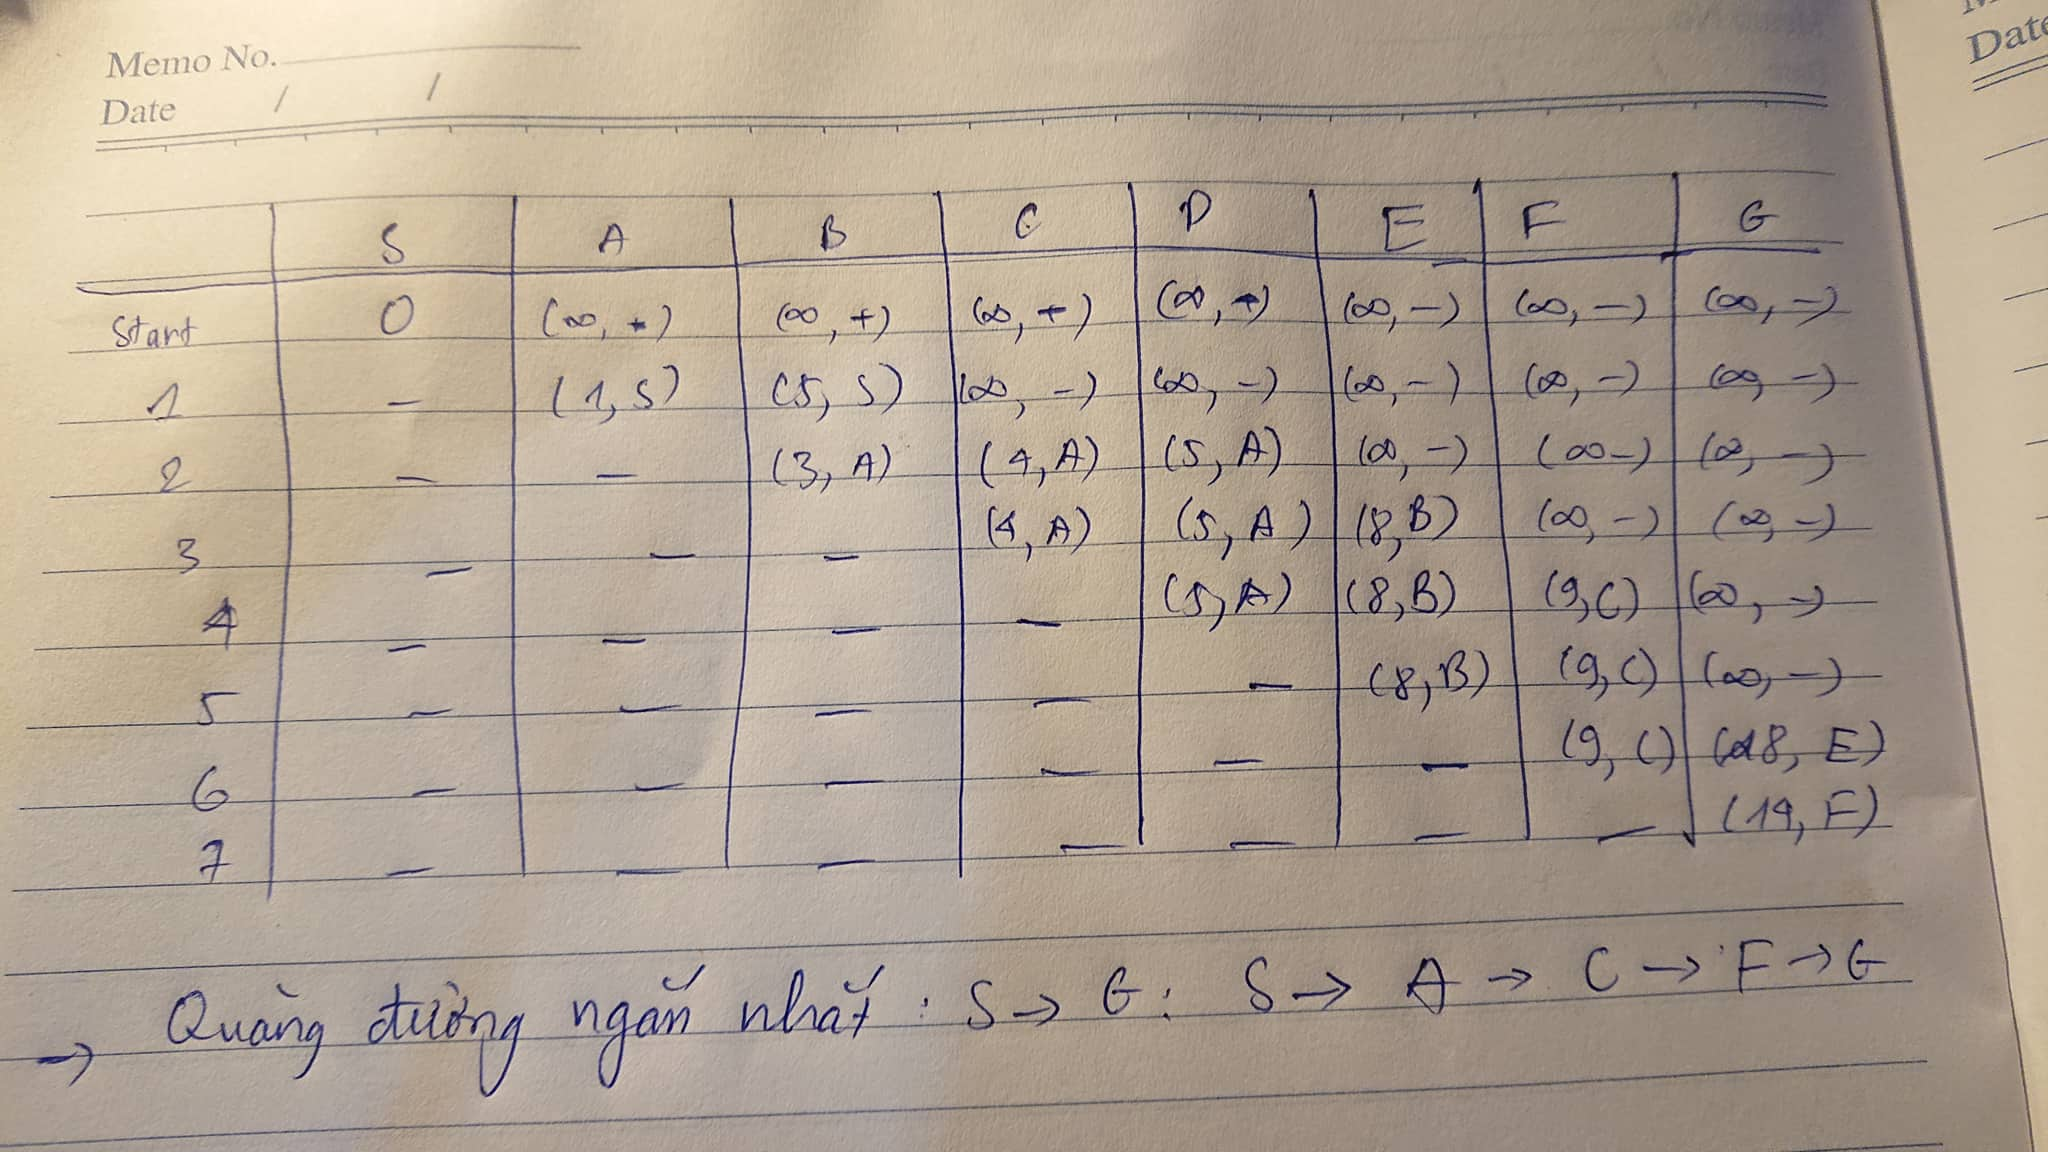 Memo No.
Date / /
Date
S A B C D E F G
Start 0 (∞, +) (∞, +) (∞, +) (∞, +) (∞, -) (∞, -) (∞, -)
1 - (1, S) (5, S) (∞, -) (∞, -) (∞, -) (∞, -) (∞, -)
2 - - (3, A) (4, A) (5, A) (∞, -) (∞-) (∞, -)
3 - - - (4, A) (5, A) (8, B) (∞, -) (∞, -)
4 - - - - (5, A) (8, B) (9, C) (∞, -)
5 - - - - - (8, B) (9, C) (∞, -)
6 - - - - - - (9, C) (18, E)
7 - - - - - - - (14, F)
→ Quãng đường ngắn nhất : S → G : S → A → C → F → G